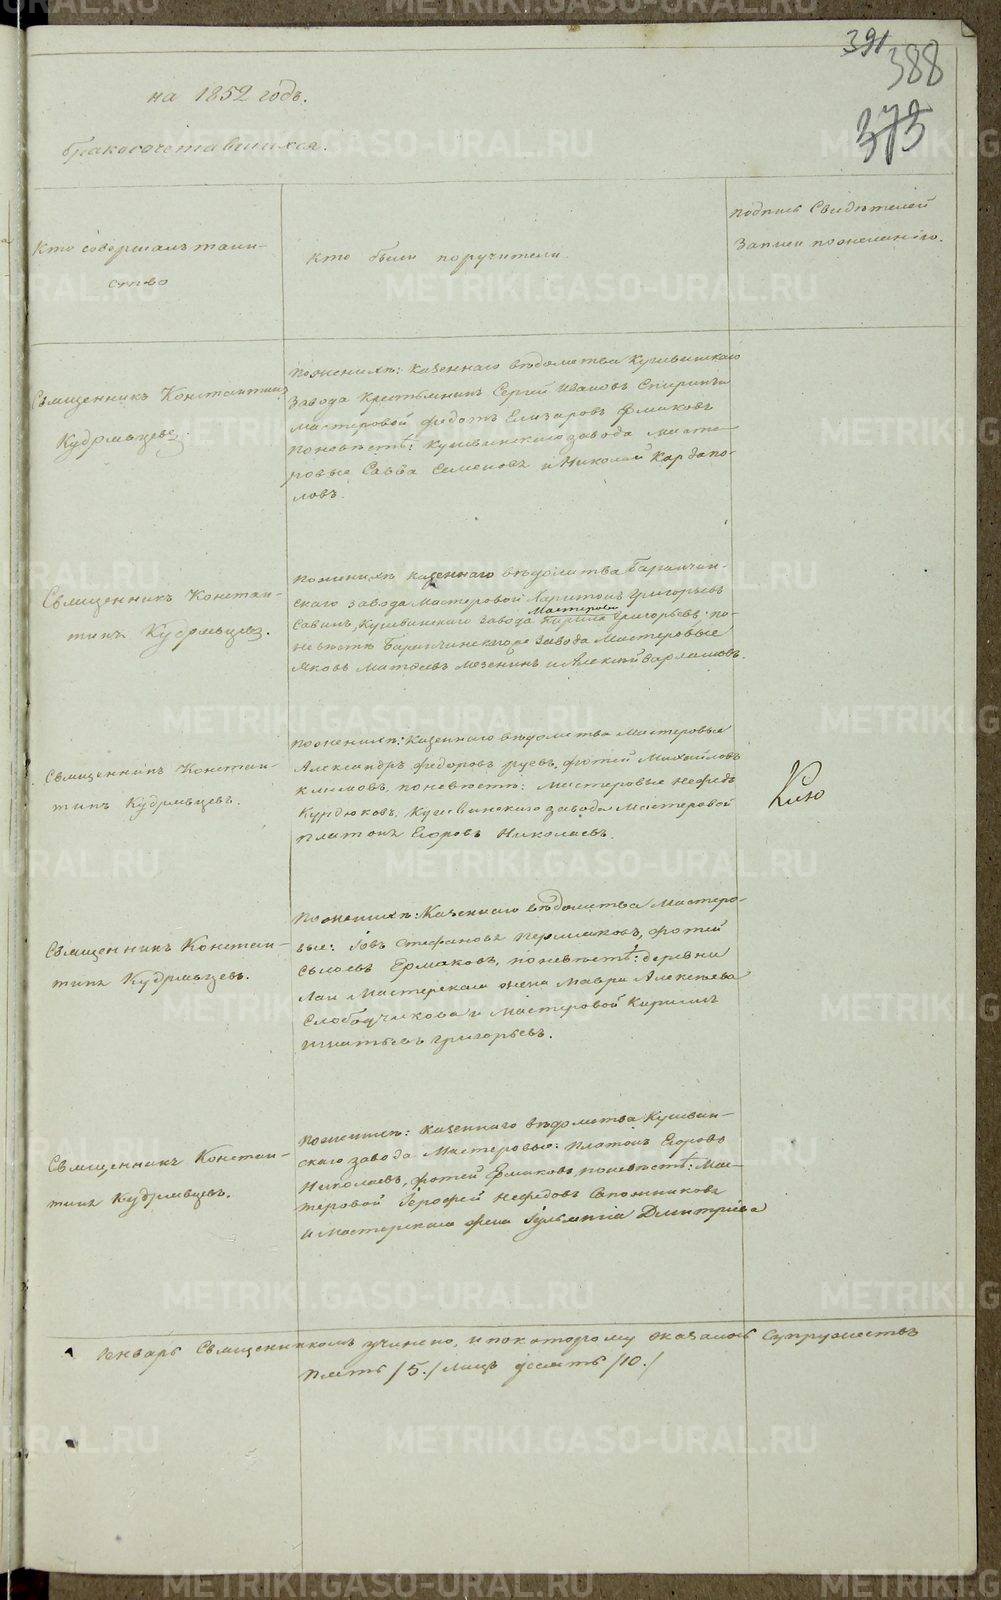 391
388
373
на 1852 годъ.
бракосочетавшихся.
Кто совершалъ таин-
ство
Кто были поручители.
Подпись Свидетелей
Записи по желанію.
Священникъ Константинъ
Кудрявцевъ.
По женихѣ: Казеннаго вѣдомства Кушвинскаго
Завода Крестьянинъ Сергей Ивановъ Спиринъ и
Мастеровой Федотъ Елизаровъ Ермаковъ
По невѣстѣ: Кушвинскаго завода масте-
ровые Савва Семеновъ и Николай Кардапо-
ловъ.
Священникъ Констан-
тинъ Кудрявцевъ.
По женихѣ казеннаго вѣдомства Баранчин-
скаго завода Мастеровой Харитонъ Григорьевъ
Савинъ, Кушвинскаго завода Мастеровой Григорьевъ; по
невѣстѣ Баранчинскаго завода Мастеровые
Яковъ Матвеевъ Мезенинъ и Алексѣй Варламовъ.
Священникъ Констан-
тинъ Кудрявцевъ.
По женихѣ: Казеннаго вѣдомства Мастеровые
Александръ Федоровъ Фотей Михайловъ
Климовъ, по невѣстѣ: Мастеровые Нефедъ
Курдюковъ, Кушвинскаго завода Мастеровой
Платонъ Егоровъ Николаевъ.
Священникъ Констан-
тинъ Кудрявцевъ.
По женихѣ: Казеннаго вѣдомства Мастеро-
вые: Іовъ Стефановъ Пермяковъ, Фотей
Сысоевъ Ермаковъ, по невѣстѣ: деревни
Лаи Мастерскаго жена Мавра Алексѣева
Слободчикова и Мастеровой Кирилъ
Игнатьевъ Григорьевъ.
Священникъ Констан-
тинъ Кудрявцевъ.
По женихѣ: Казеннаго вѣдомства Кушвин-
скаго завода Мастеровые: Платонъ Егоровъ
Николаевъ, Фотей Ермаковъ, по невѣстѣ: Мас-
теровой Ерофей Нефедовъ Сапожниковъ
и Мастерскаго жена Іульянія Дмитріева
Январь Священникомъ учинено, и по которому оказалось Супружествъ
пять /5./ лицъ десять /10./
METRIKI.GASO-URAL.RU